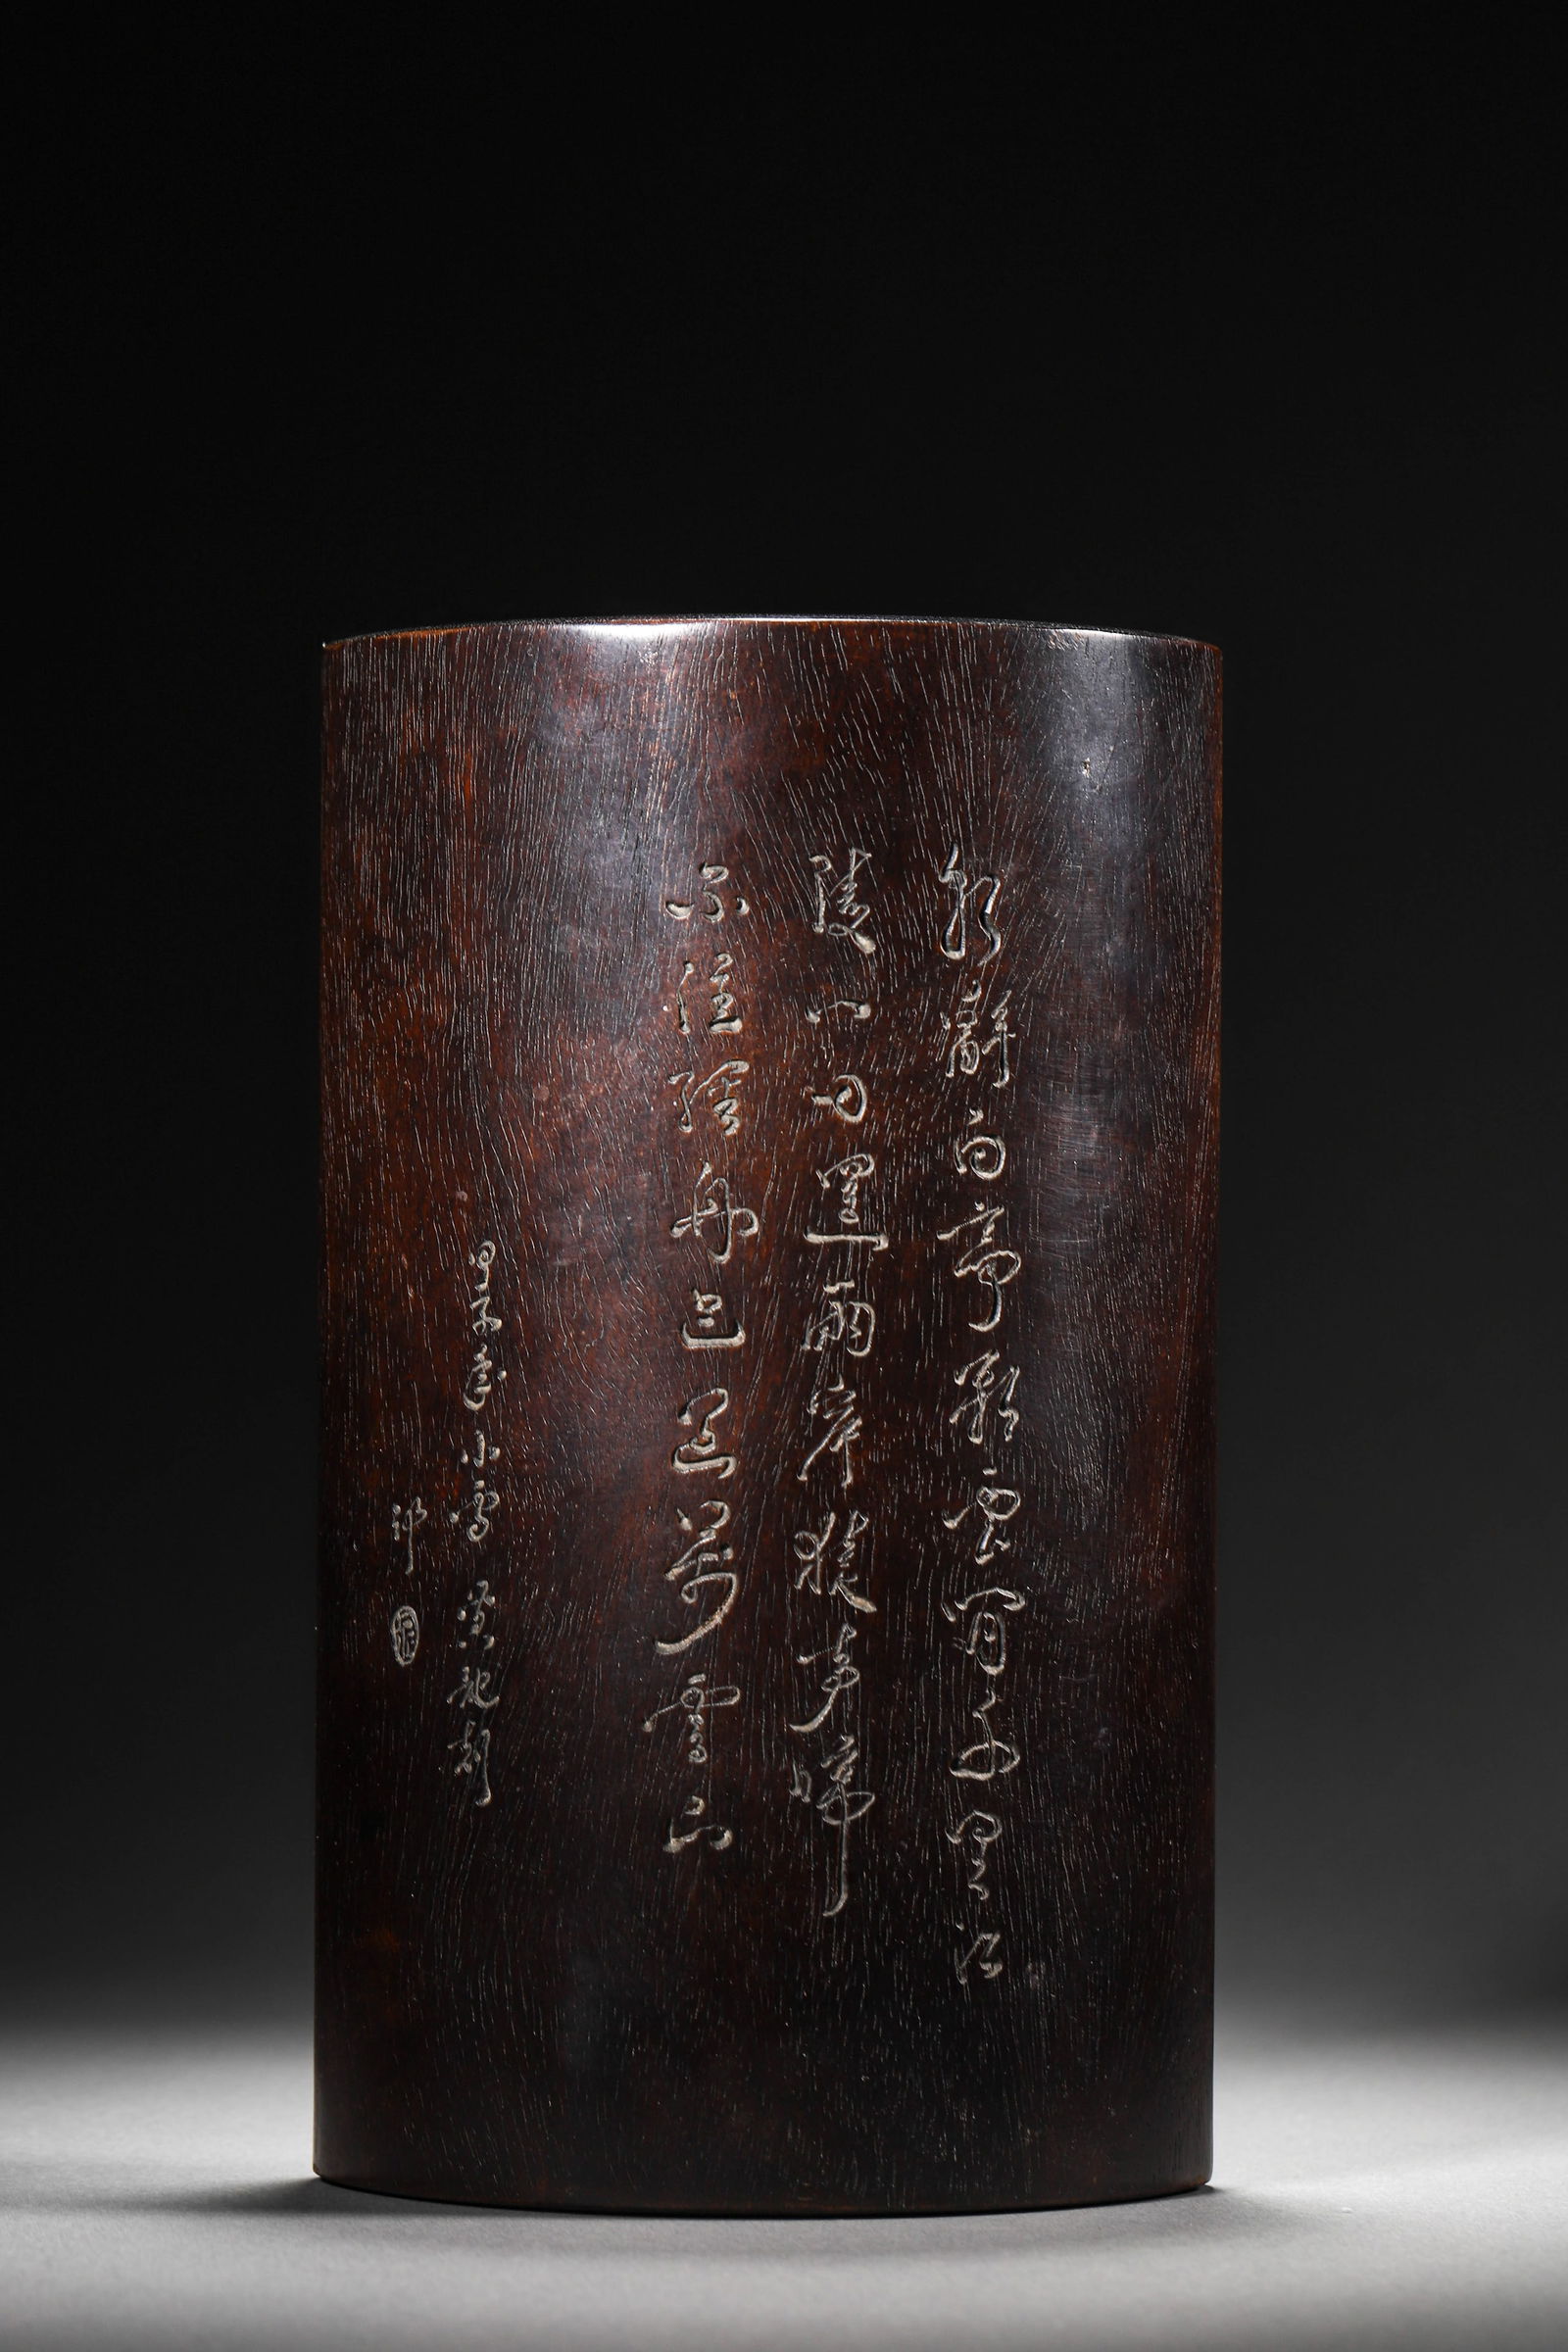 朝辭白帝彩雲間千里江
陵一日還兩岸猿聲啼
不住輕舟已過萬重山
甲子歲小雪